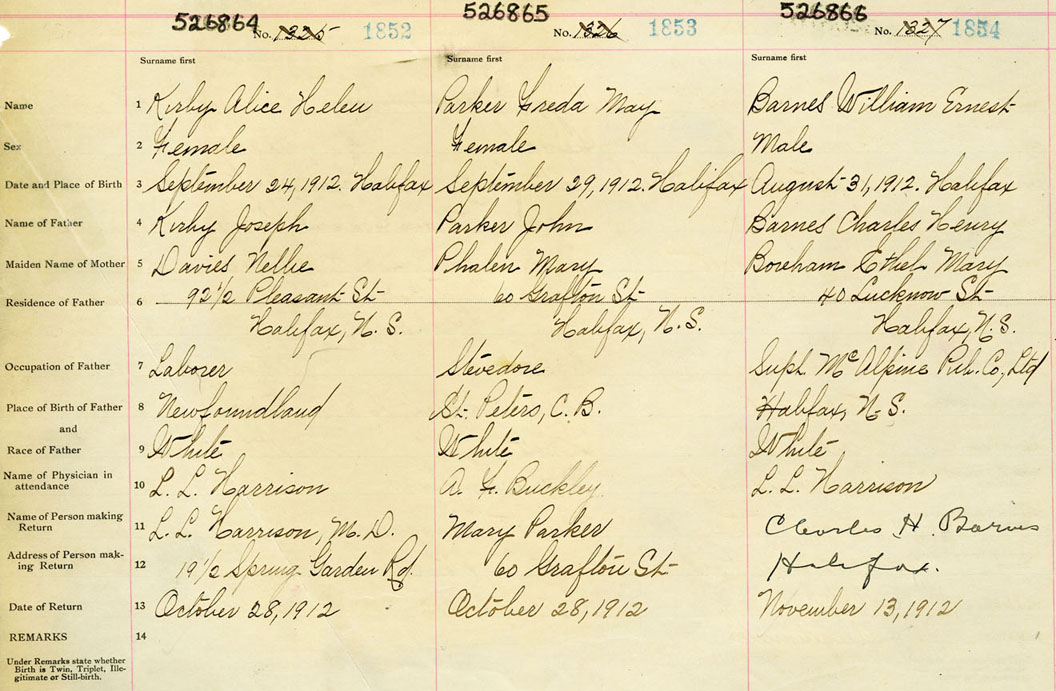 526864 No. 1325 1852 526865 No. 1326 1853 526866 No. 1327 1854
Surname first Surname first Surname first
Name 1 Kirby Alice Helen Parker Freda May Barnes William Ernest
Sex 2 Female Female Male
Date and Place of Birth 3 September 24, 1912. Halifax September 29, 1912. Halifax August 31, 1912. Halifax
Name of Father 4 Kirby Joseph Parker John Barnes Charles Henry
Maiden Name of Mother 5 Davies Nellie Phalen Mary Boreham Ethel Mary
Residence of Father 6 92 1/2 Pleasant St 60 Grafton St 40 Lucknow St
Halifax, N. S. Halifax, N. S. Halifax, N. S.
Occupation of Father 7 Laborer Stevedore Supt. McAlpine Pub. Co., Ltd
Place of Birth of Father 8 Newfoundland St. Peters, C. B. Halifax, N. S.
and
Race of Father 9 White White White
Name of Physician in
attendance 10 L. L. Harrison A. F. Buckley L. L. Harrison
Name of Person making
Return 11 L. L. Harrison, M. D. Mary Parker Charles H. Barnes
Address of Person mak-
ing Return 12 19 1/2 Spring Garden Rd. 60 Grafton St Halifax.
Date of Return 13 October 28, 1912 October 28, 1912 November 13, 1912
REMARKS 14
Under Remarks state whether
Birth is Twin, Triplet, Ille-
gitimate or Still-birth.